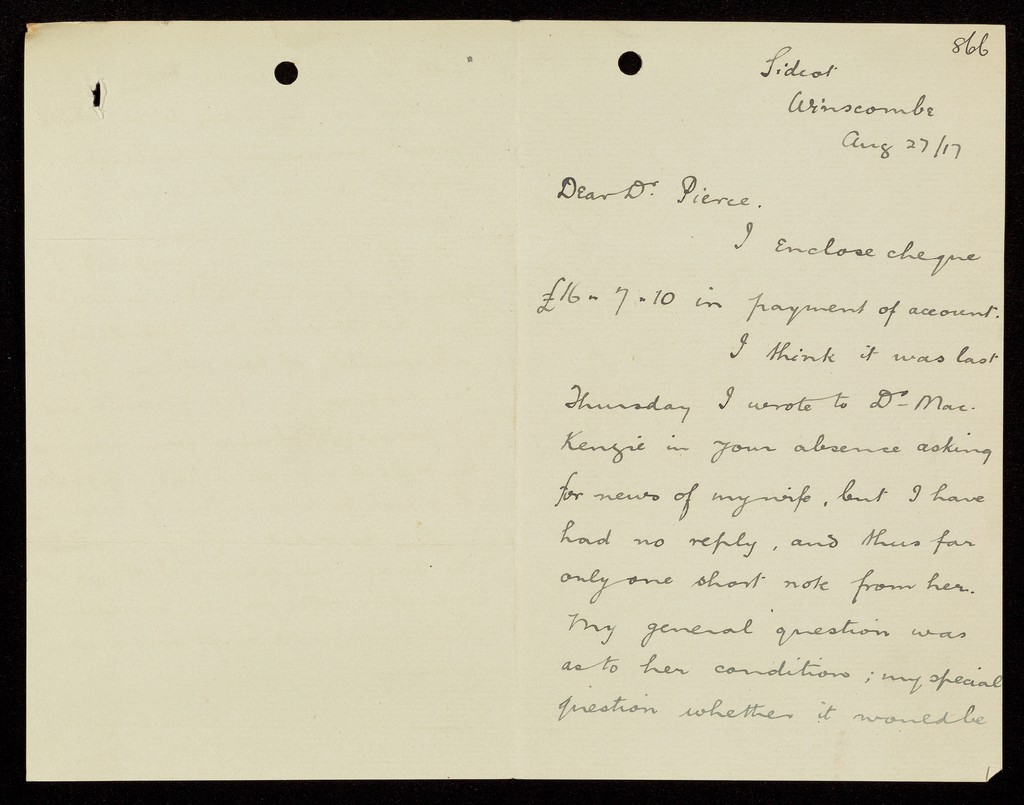 866
Sidcot
Winscombe
Aug 27/17
Dear Dr. Pierce.
I enclose cheque
£16 - 7 - 10 in payment of account.
I think it was last
Thursday I wrote to Dr Mac-
Kenzie in your absence asking
for news of my wife, but I have
had no reply, and thus far
only one short note from her.
My general question was
as to her condition; my special
question whether it would be
1